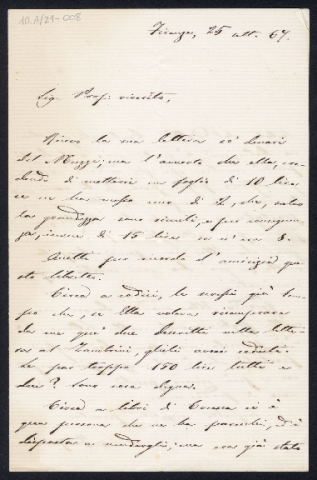 10.A/21-008
Firenze, 25 ott. 67.
Sig. Prof. riverito,
Ricevo la sua lettera co' denari
del Muzzi; ma l'avverto che ella, cre
dendo di mettervi un foglio di 10 lire
ce ne ha messo uno di 2, che, salvo
la grandezza sono simili, e per consegue
za, invece di 15 lire ce n'era 8.
Ametta per amor d'amicizia que
sta libertà.
Circa a codici, le scrissi già tem
po che, se Ella voleva ricomprare
da me que' due descritti nella lette
ra al Zambrini, glieli avrei ceduti.
Le par troppo 150 lire tutti e
due? Sono cosa degna.
Circa a libri di Crusca ci è
una persona che ne ha parecchi, ed è
disposta a venderli; ma era già stato